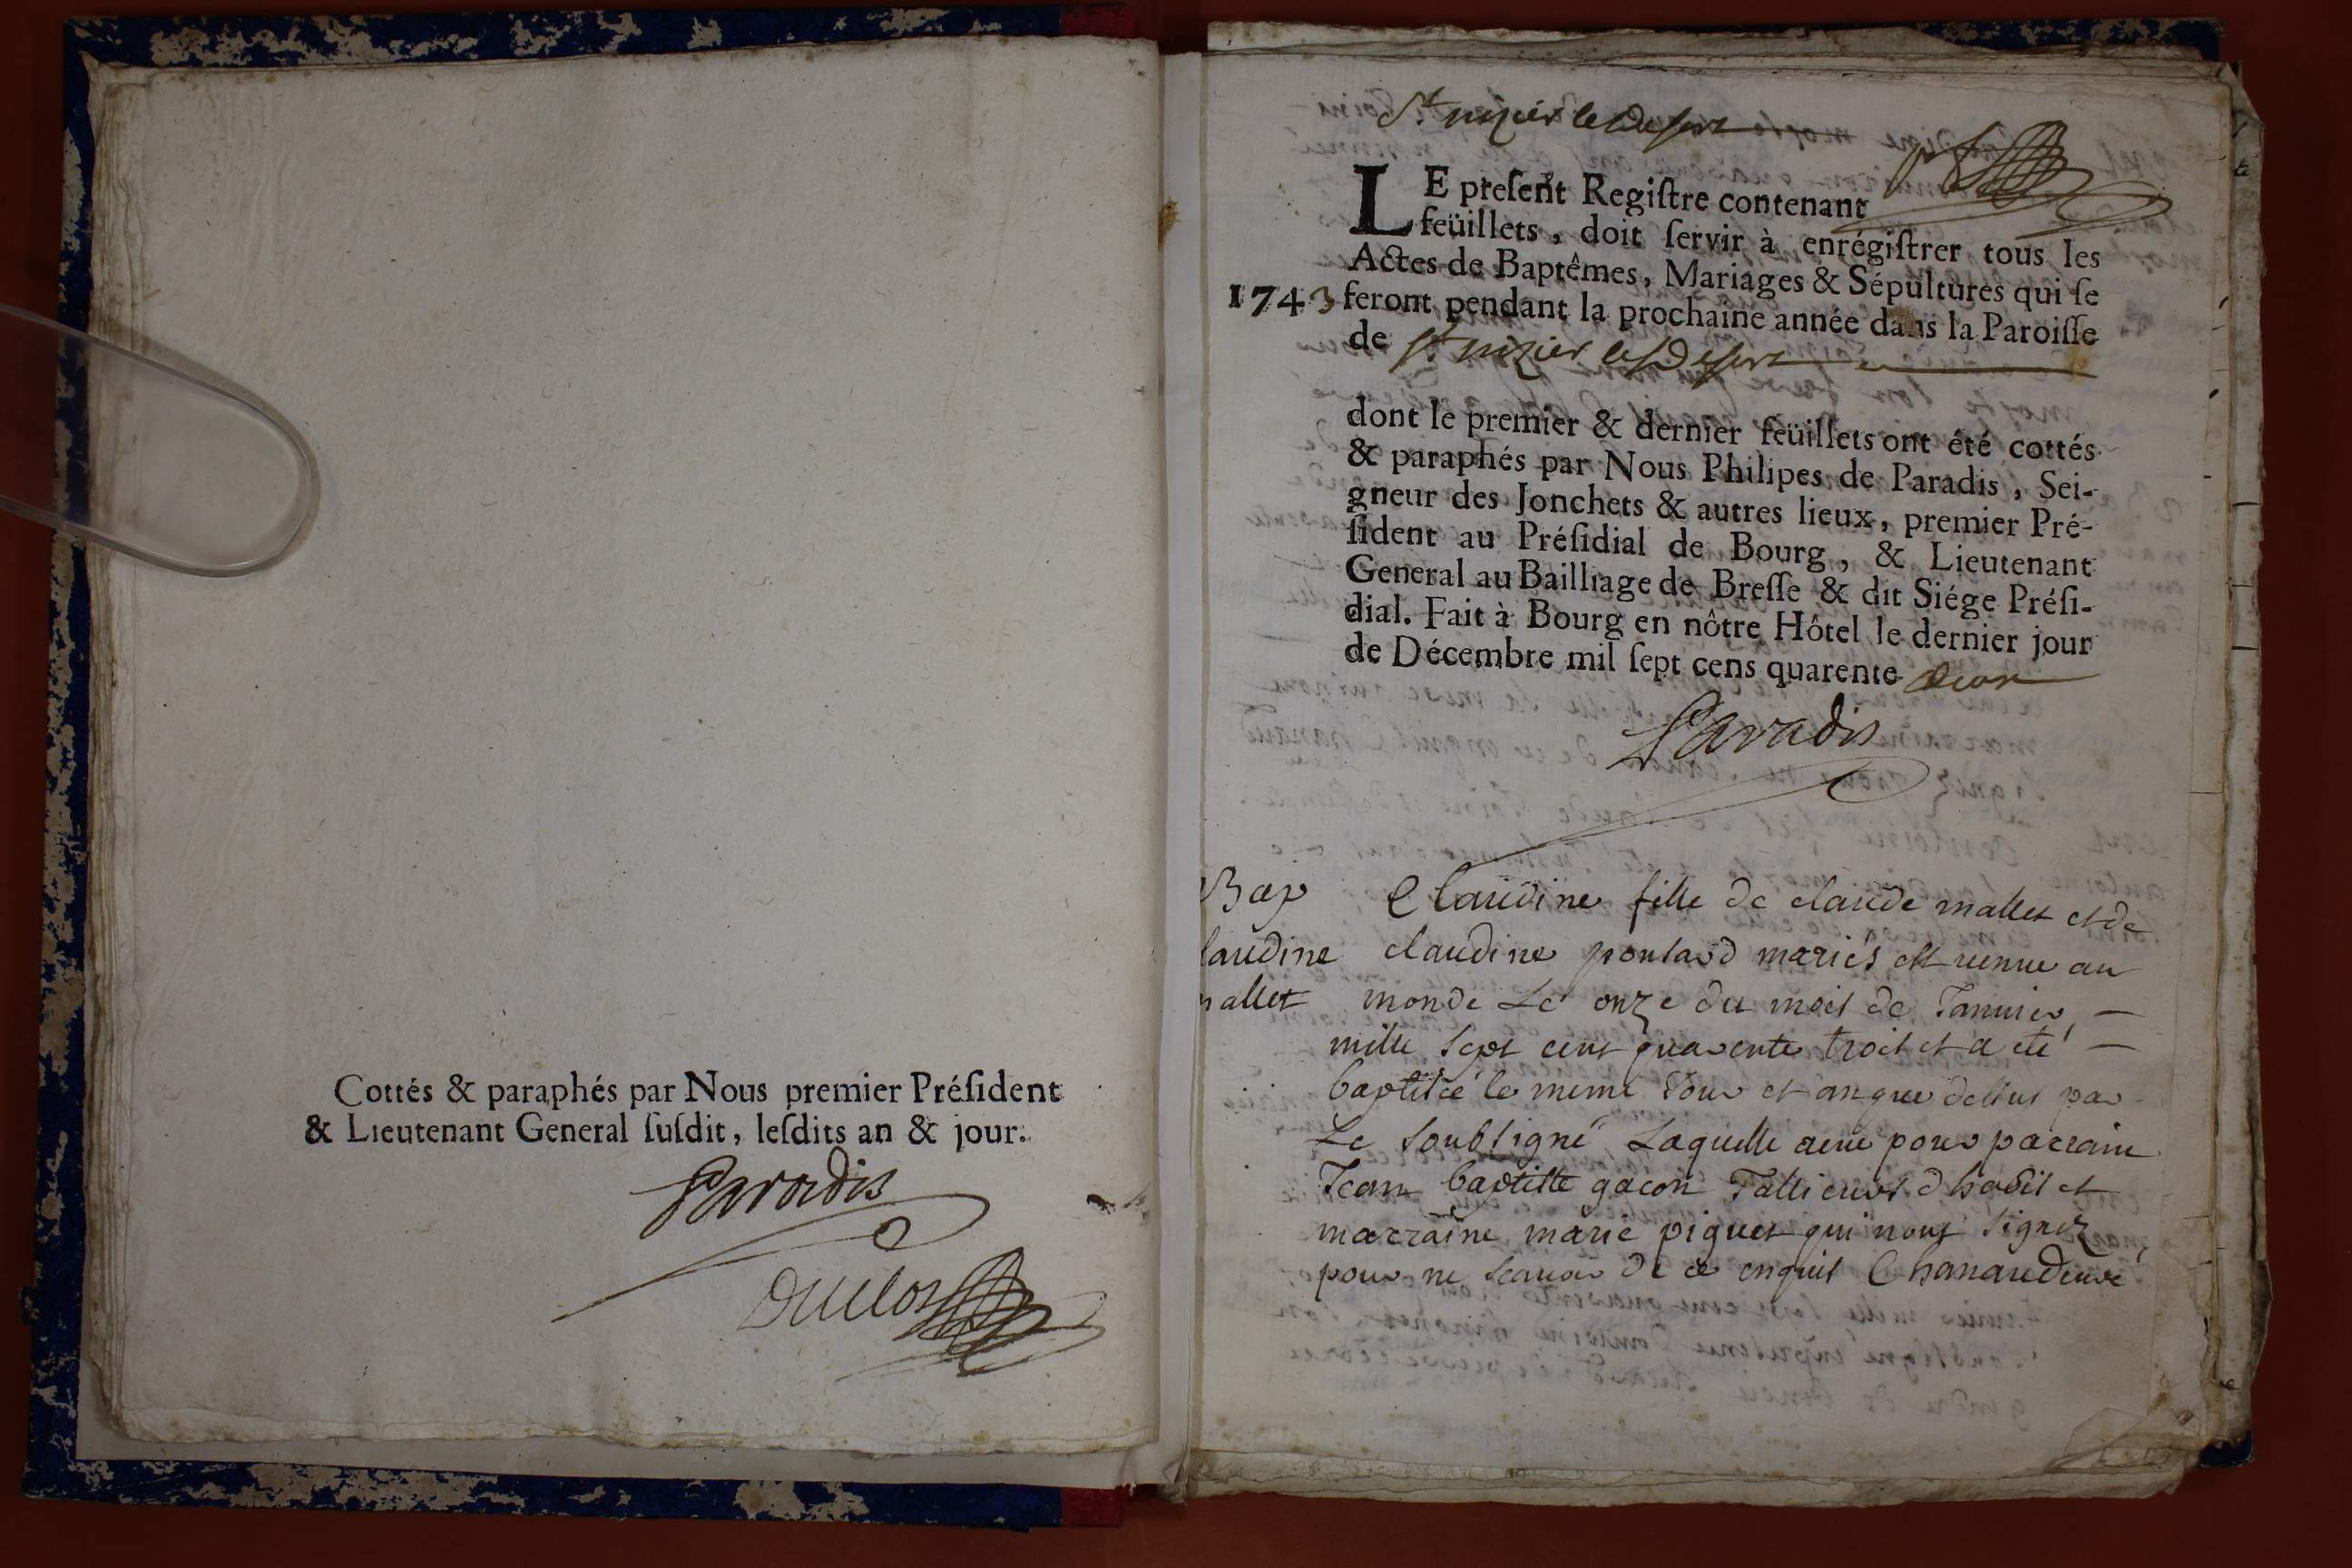 Cottés & paraphés par Nous premier Préſident
& Lieutenant General ſuſdit, leſdits an & jour.
Paradis
Duclos
St nizier le Desert
LE preſent Regiſtre contenant
feüillets, doit ſervir à enrégiſtrer tous les
Actes de Baptêmes, Mariages & Sépultures qui ſe
1743 feront pendant la prochaine année dans la Paroiſſe
de St nizier le Desert
dont le premier & dernier feüillets ont été cottés
& paraphés par Nous Philipes de Paradis, Sei-
gneur des Jonchets & autres lieux, premier Pré-
ſident au Préſidial de Bourg, & Lieutenant
General au Bailliage de Breſſe & dit Siége Préſi-
dial. Fait à Bourg en nôtre Hôtel le dernier jour
de Décembre mil ſept cens quarente deux
Paradis
Bap
laudine
mallet
Claudine fille de claude mallet et de
claudine poulard mariés est venue au
monde Le onze du mois de Janvier
mille sept cent quarente trois et a eté
baptisée le meme Jour et an que dessus par
Le soubsigné Laquelle a eue pour parrain
Jean baptiste gacon Tallieurs dhabit et
marraine marie piguet qui nont signez
pour ne scavoir de ce enquis